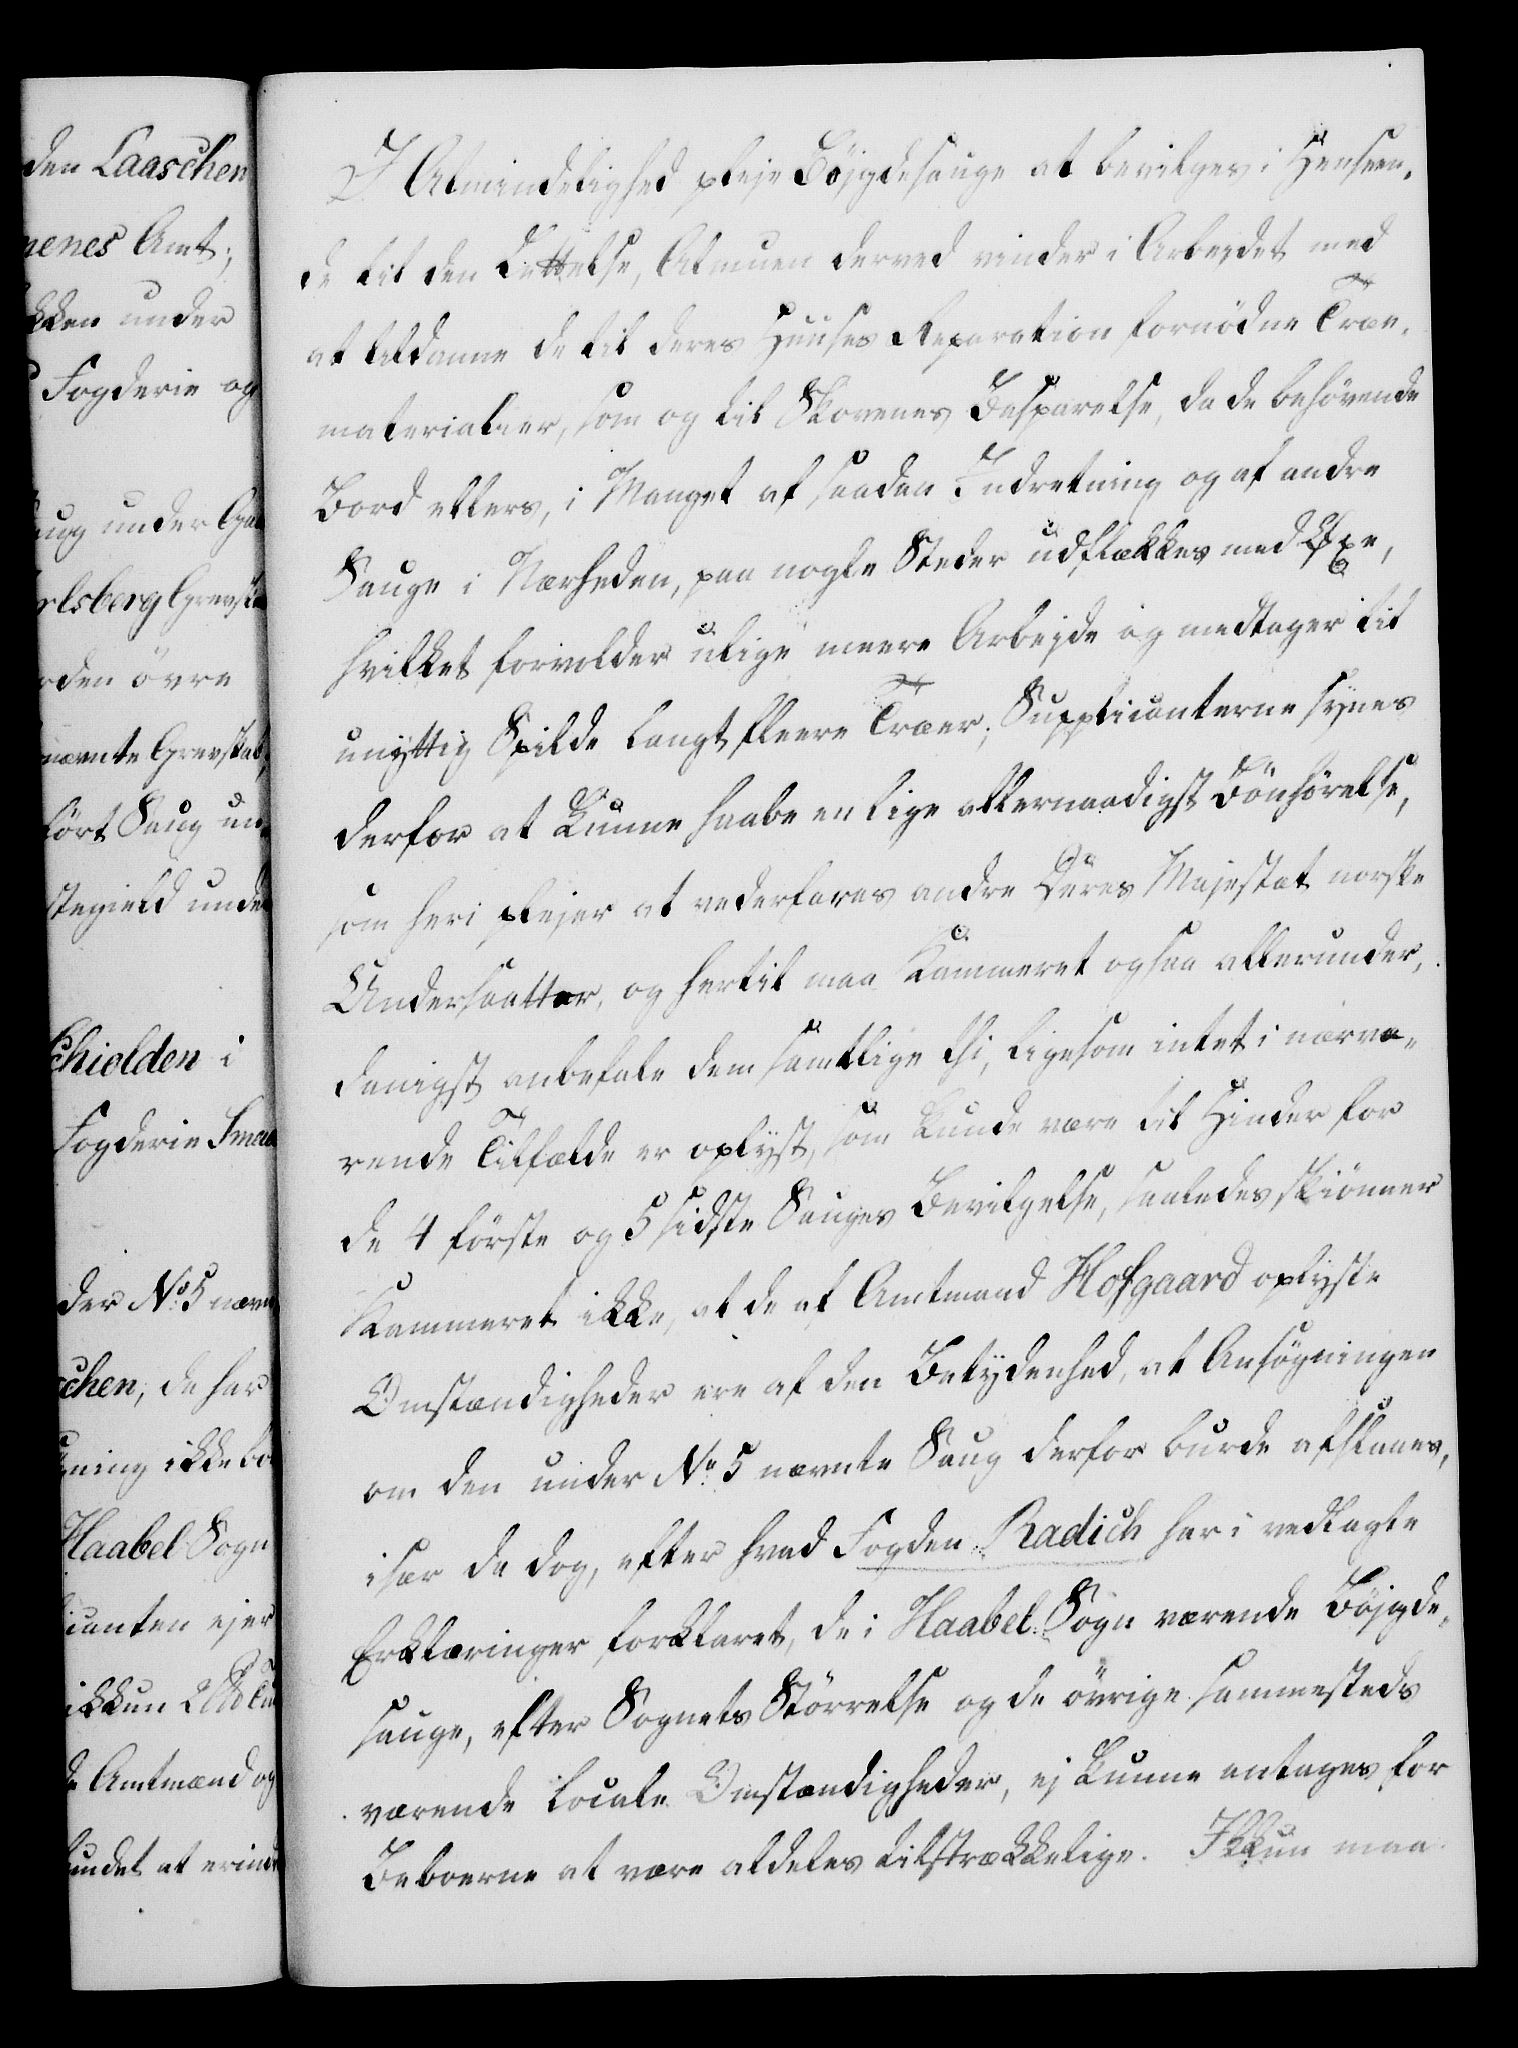 den Laaschen
nenes Amt;
kken under
Fogderie og
aug under Gre
rlsberg Grevsk
rden övre
nævnte Grevskab,
fört Saug un-
stegield under
Schiolden i
Fogderie Smaa
der No 5 nævn
schen, de har
ning ikke be
Haabel Sogn
canten ejer
ikkun
de Amtmænd og
fundet at erind
I Almindelighed pleje Böjgdesauge at bevilges i Henseen-
de til den Lettelse, Almuen derved vinder i Arbejdet med
at tildanne de til deres Huuses Reparation fornödne Træe-
materialier, som og til Skovenes Besparelse, da de behövende
Bord ellers, i Mangel af saadan Indretning og af andre
Sauge i Nærheden, paa nogle Steder udflækkes med Öxe,
hvilket forvolder ulige meere Arbejde og medtager til
unyttig Spilde langt fleere Træer; Supplicanterne synes
derfor at kunne haabe en lige allernaadigst Bönhörelse,
som heri plejer at vederfares andre Deres Majestæt norske
Undersaatter, og hertil maa Kammeret ogsaa allerunder-
danigst anbefale dem samtlige thi, ligesom intet i nærvæ-
rende Tilfælde er oplyst, som kunde være til Hinder for
de 4 förste og 5 sidste Sauges Bevilgelse, saaledes skiönner
Kammeret ikke, at de af Amtmand Hofgaard oplyste
Omstændigheder ere af den Betydenhed, at Ansögningen
om den under No 5 nævnte Saug derfor burde afslaaes,
især da dog, efter hvad Fogden Radich har i vedlagte
Erklæringer forklaret, de i Haabel Sogn værende Böjgde-
sauge, efter Sognets Störrelse og de övrige sammesteds
værende locale Omstændigheder, ej kunne antages for
Beboerne at være aldeles tilstrækkelige. Ikkun maa